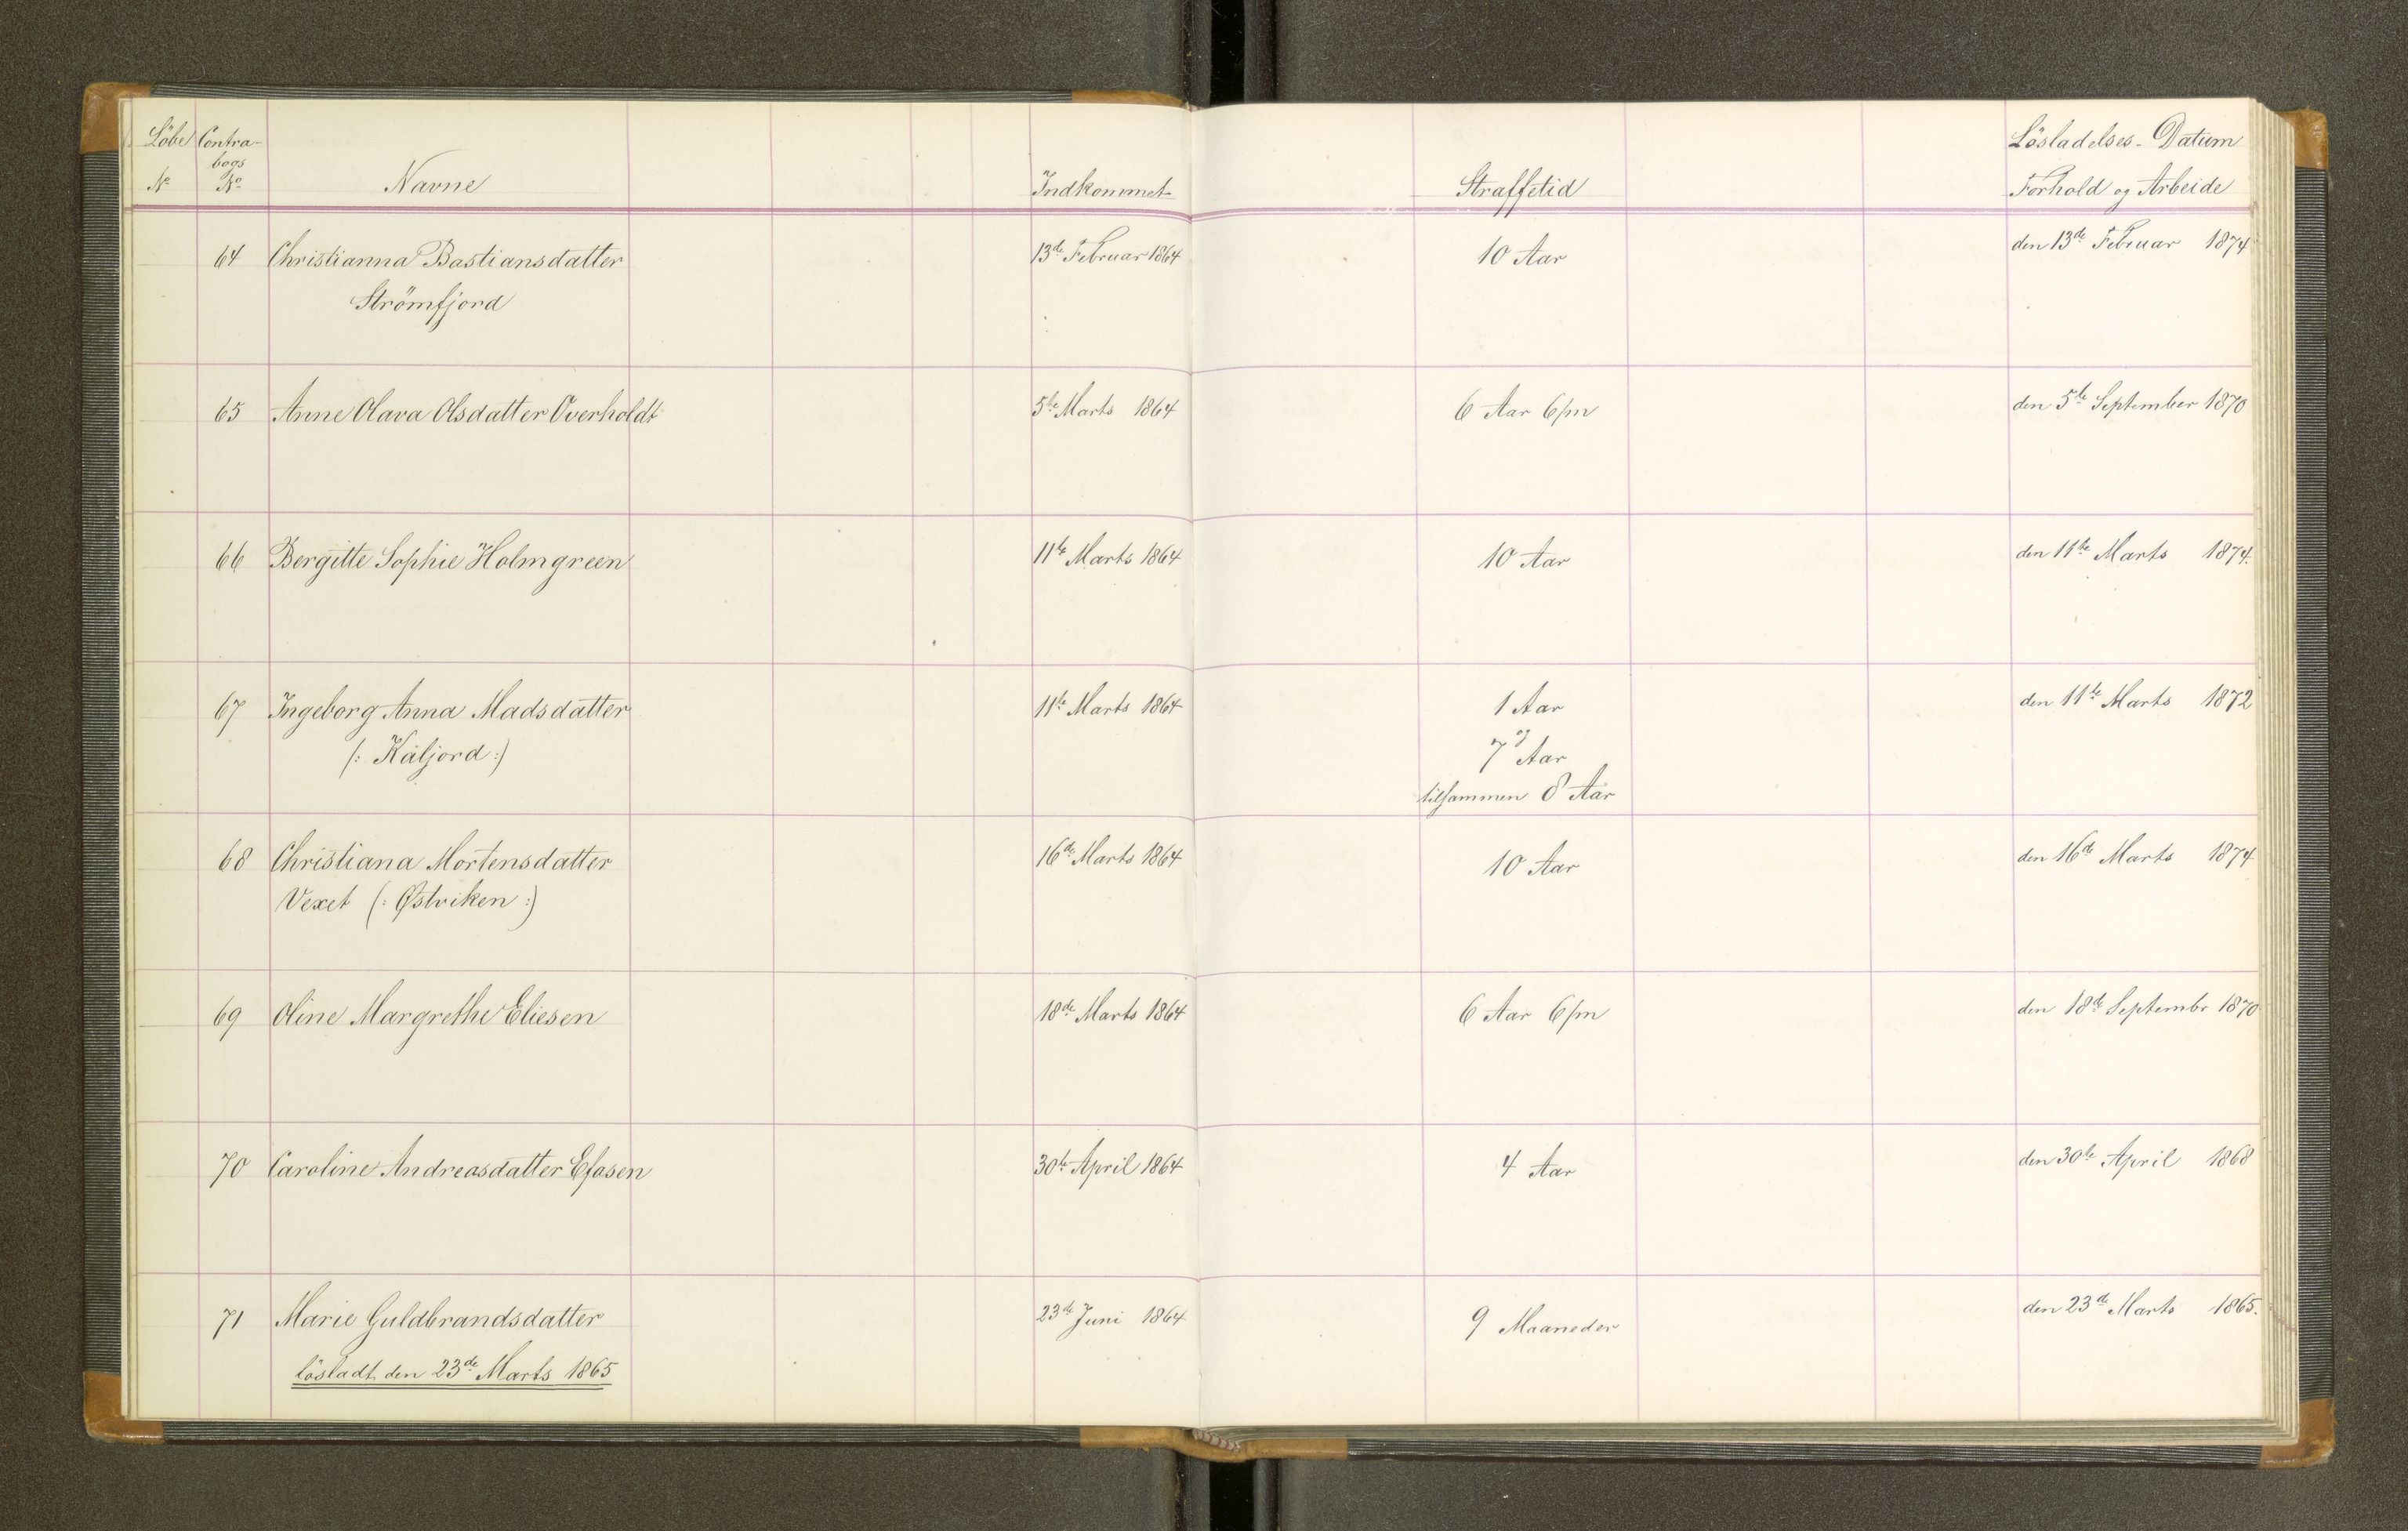 Löbe Nº Contra-bogs Nº Navne Indkommet Straffetid Lösladelses-Datum Forhold og Arbeide
64 Christianna Bastiansdatter 13de Februar 1864 10 Aar den 13de Februar 1874
Strömfjord
65 Anne Olava Olsdatter Overholdt 5te Marts 1864 6 Aar 6/m den 5te September 1870
66 Bergitte Sophie Holmgreen 11te Marts 1864 10 Aar den 11te Marts 1874.
67 Ingeborg Anna Madsdatter 11te Marts 1864 1 Aar den 11te Marts 1872
og
(: Kåljord :) 7 Aar
tilsammen 8 Aar
68 Christiana Mortensdatter 16de Marts 1864 10 Aar den 16de Marts 1874
Vexet (: Østviken :)
69 Oline Margrethe Eliesen 18de Marts 1864 6 Aar 6/m den 18de Septembr 1870
70 Caroline Andreasdatter 30te April 1864 4 Aar den 30te April 1868
71 Marie Guldbrandsdatter 23de Juni 1864 9 Maaneder den 23de Marts 1865.
lösladt den 23de Marts 1865